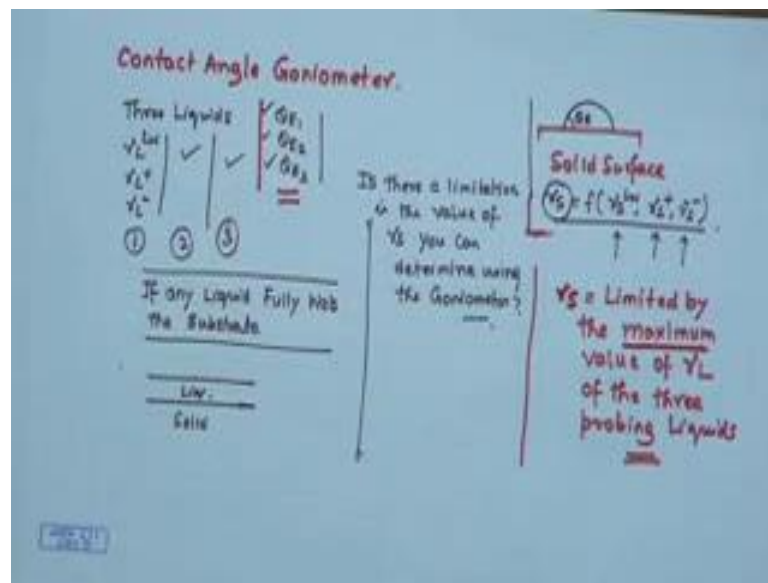 Contact Angle Goniometer.
Three Liquids
γL^LW
γL+
γL-
✓ ✓
✓ θE1
✓ θE2
✓ θE3
① ② ③
If any Liquid Fully Wets
the Substrate
Liq.
Solid
Is there a limitation
in the value of
γS you can
determine using
the Goniometer?
θE
Solid Surface
γS = f(γS^LW, γS+, γS-)
γS = Limited by
the maximum
value of γL
of the three
probing Liquids